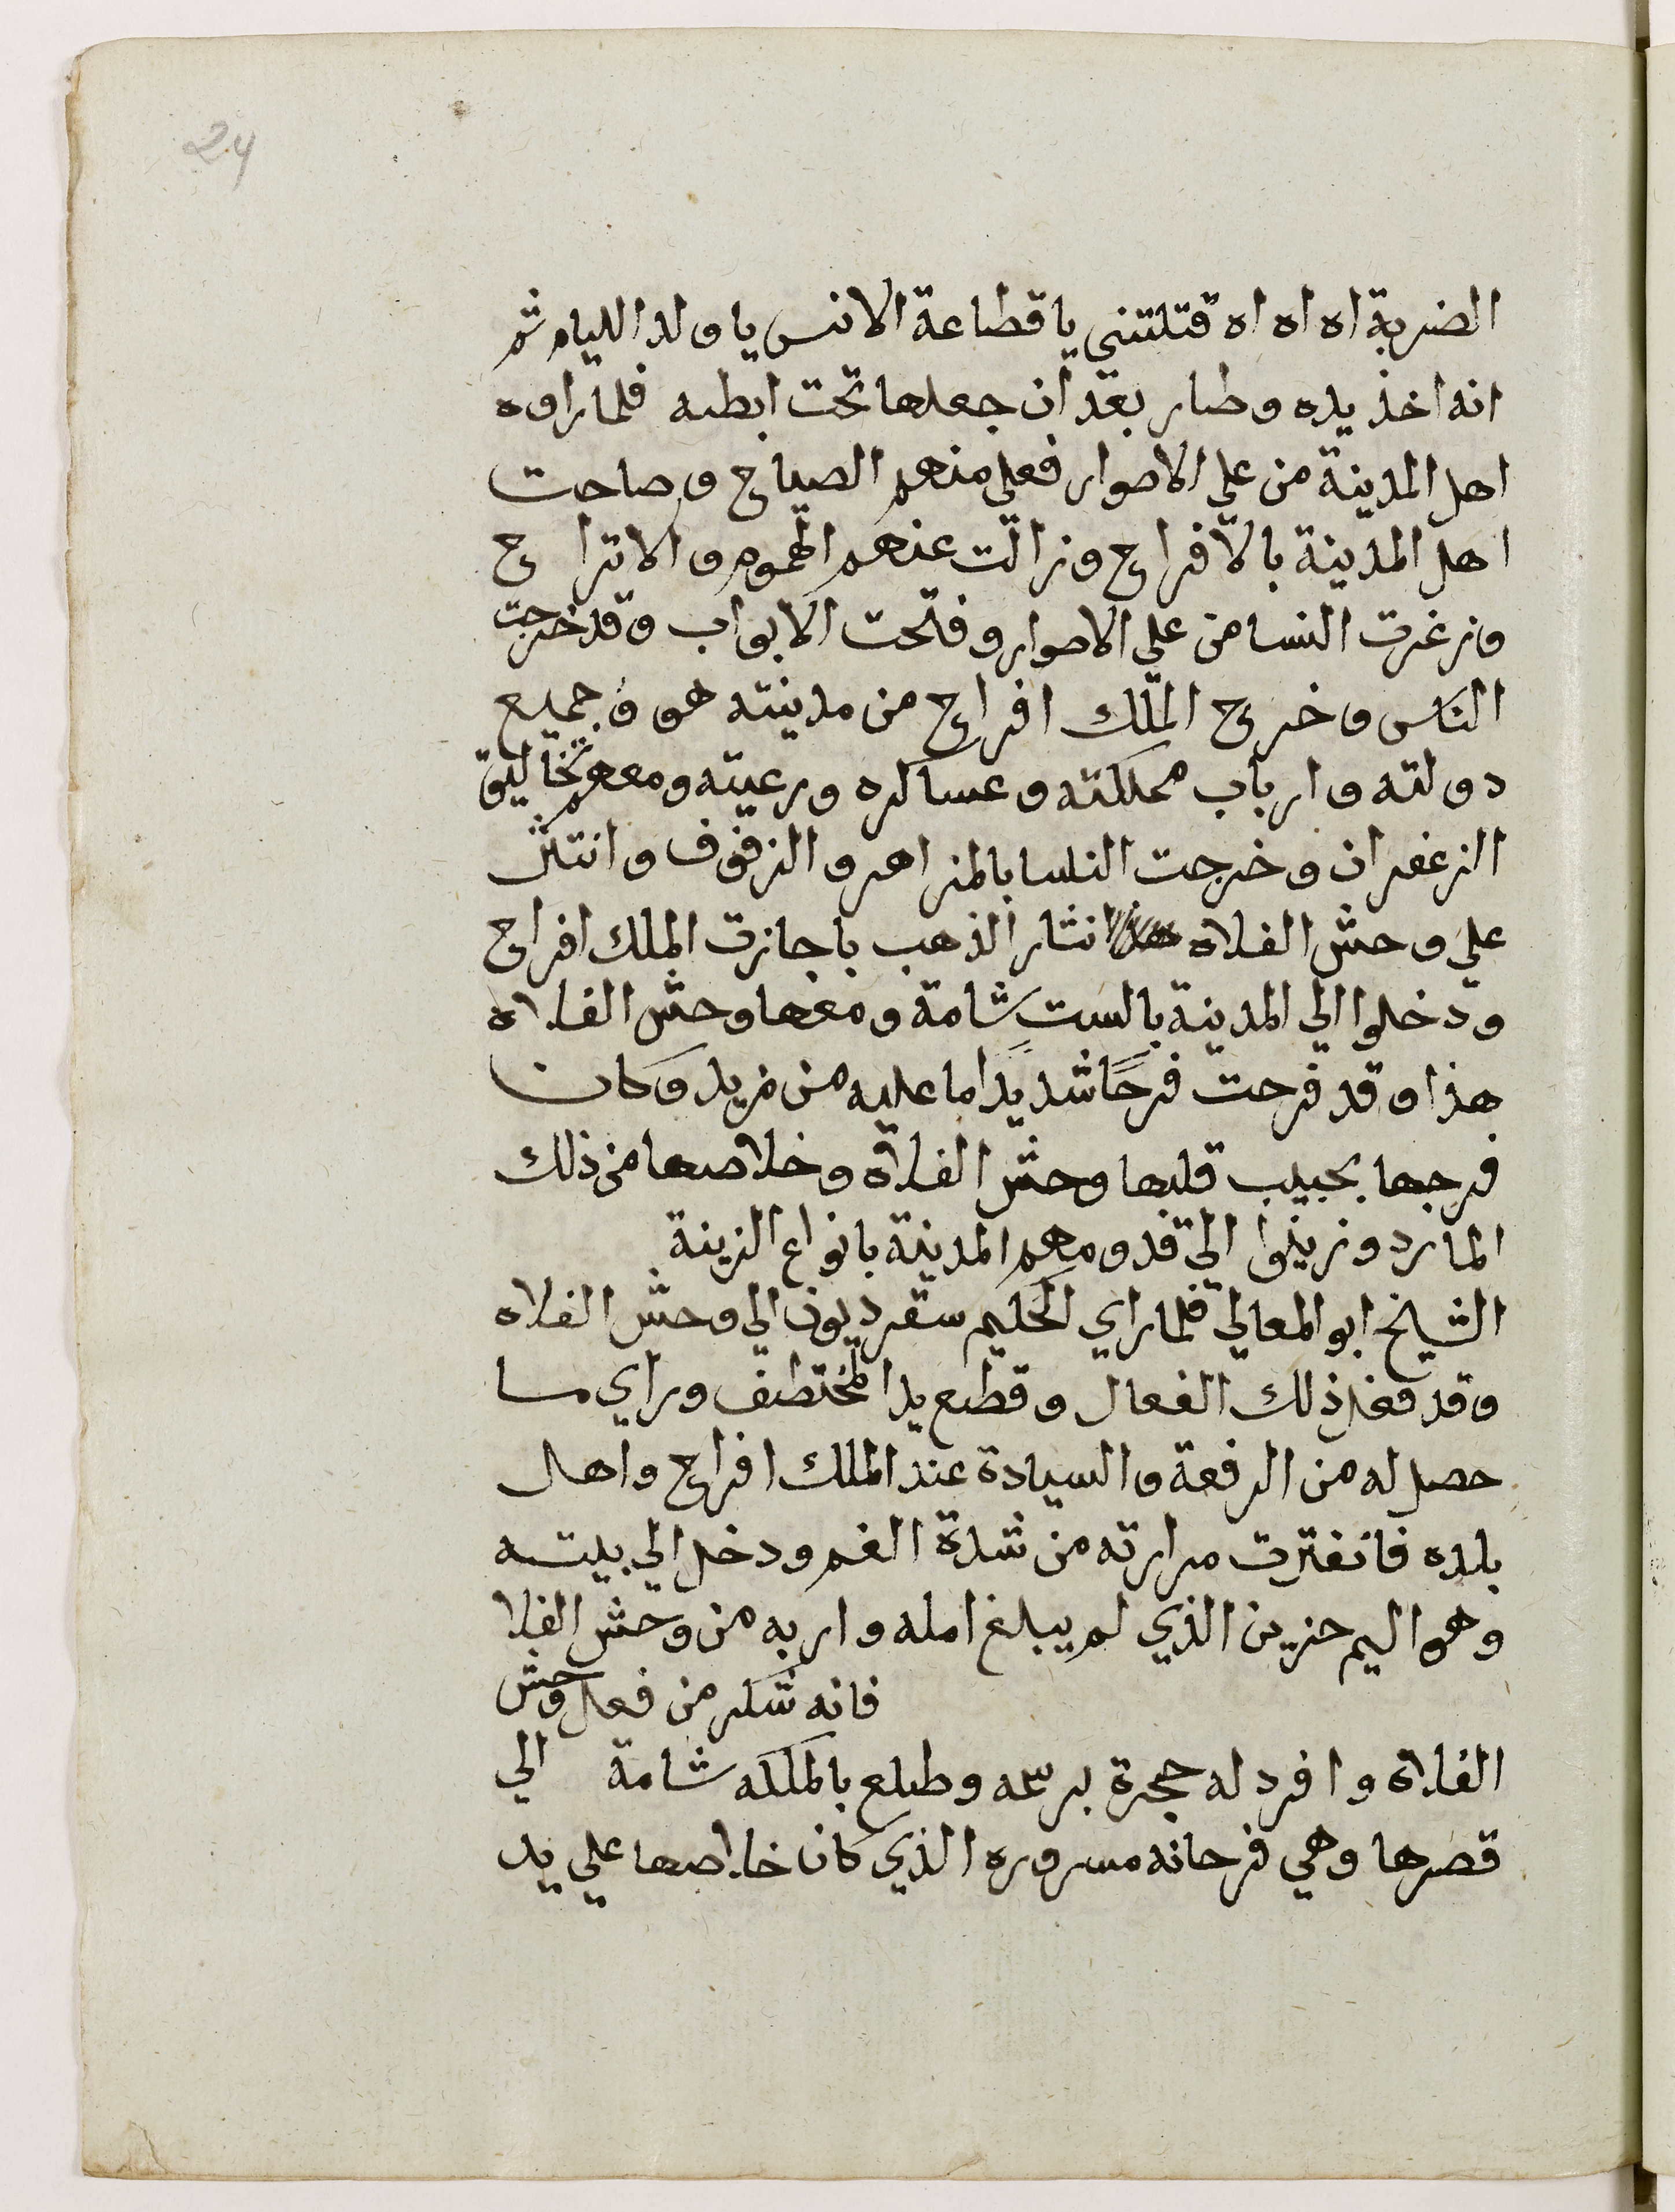 24
الضربة اه اه اه قتلتني يا قطاعة الانس يا ولد الليام ثم
انه اخذ يده وطار بعد ان جعلها تحت ابطه فلما راوه
اهل المدينة من علي الاصوار فعلي منهم الصياح وصاحت
اهل المدينة بالافراح وزالت عنهم الهموم والاتراح
وزغرت النسا من علي الاصوار وفتحت الابواب وقد خرجت
الناس وخرج الملك افراح من مدينته هو وجميع
دولته وارباب مملكته وعساكره ورعيته ومعهم تخاليق
الزعفران وخرجت النسا بالمزاهر والزفوف وانتثر
علي وحش الفلاه نثار الذهب باجازت الملك افراح
ودخلوا الي المدينة بالست شامة ومعها وحش الفلاه
هذا وقد فرحت فرحًا شديدًا ما عليه من مزيد وكان
فرحها بحبيب قلبها وحش الفلاة وخلاصها من ذلك
المارد وزينوا الي قدومهم المدينة بانواع الزينة
الشيخ ابو المعالي فلما راي الحكيم سقرديون الي وحش الفلاه
وقد فعل ذلك الفعال وقطع يد المختطف وراي ما
حصل له من الرفعة والسيادة عند الملك افراح واهل
بلده فانفترت مرارته من شدة الغم ودخل الي بيته
وهو اليم حزين الذي لم يبلغ امله واربه من وحش الفلا
فانه شكر من فعل وحش
الفلاة وافرد له حجرة برسمه وطلع بالملكه شامة الي
قصرها وهي فرحانه مسروره الذي كان خلاصها علي يد